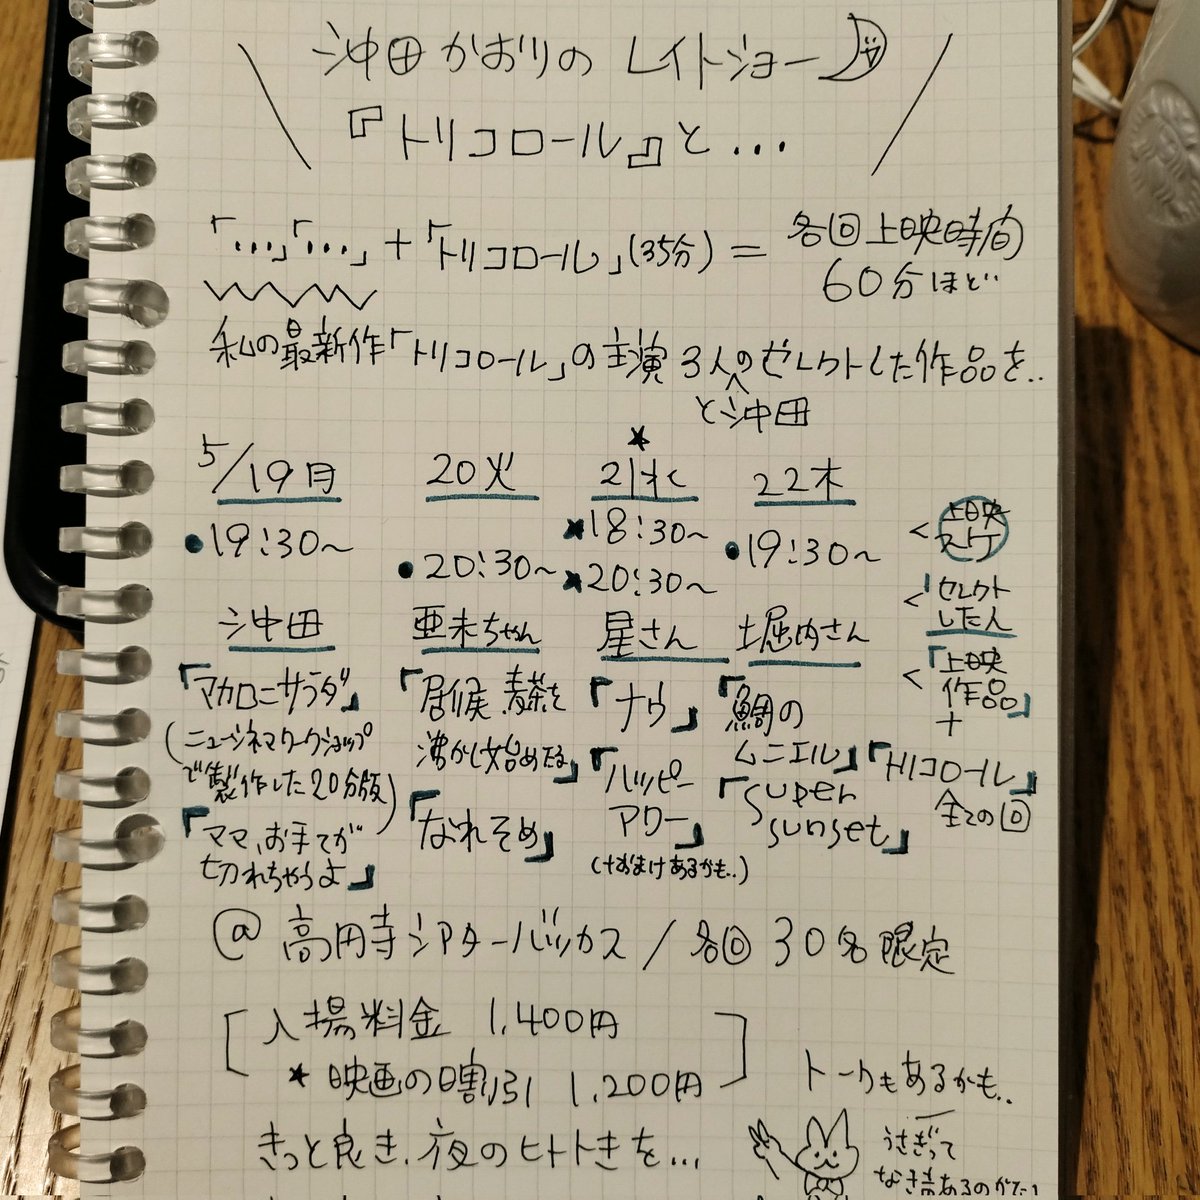 沖田かおりの レイトショー
『トリコロール』と...
「...」「...」+「トリコロール」(35分) = 各回上映時間
60分ほど
私の最新作「トリコロール」の主演3人のセレクトした作品を..
と沖田
★
5/19月 20火 21水 22木
・19:30〜 ・20:30〜 ★18:30〜 ・19:30〜
★20:30〜
<上映スケ
沖田 亜未ちゃん 星さん 堀内さん
<セレクト
した人
『マカロニサラダ』
(ニューシネマワークショップ
で製作した20分版)
『ママ、お手てが
切れちゃうよ』
『居候、青茶を
沸かし始める』
『なれそめ』
『ナウ』
『ハッピー
アワー』
(+おまけあるかも..)
『鯛の
ムニエル』
『super
sunset』
<『上映
作品』
+
『トリコロール』
全ての回
@ 高円寺シアターバッカス / 各回 30名限定
[入場料金 1,400円
★ 映画の日割引 1,200円]
トークもあるかも..
きっと良き、夜のヒトトきを...
うさぎって